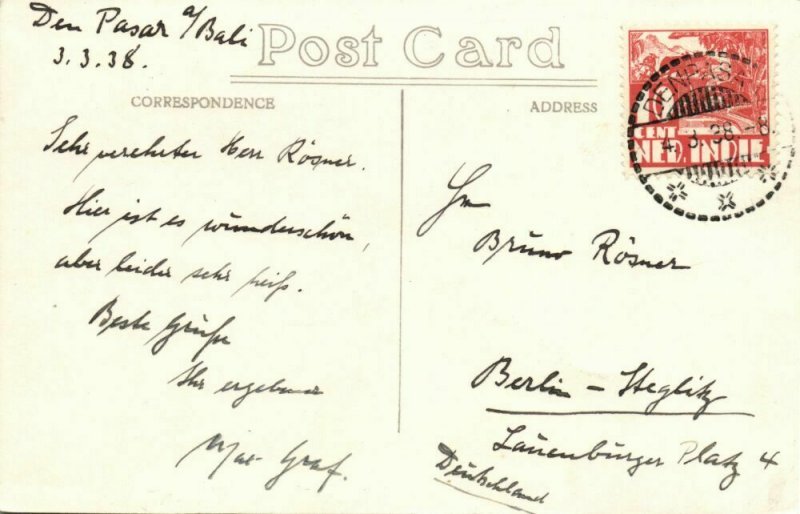 Den Pasar a/Bali
3.3.38.
Post Card
CORRESPONDENCE
ADDRESS
DENPASA
4.3.38-8.
CENT
NED. INDIE
Sehr verehrter Herr Rösner.
Hier ist es wunderschön,
aber leider sehr heiß.
Beste Grüße
Ihr ergebener
Max Graf.
Hn
Bruno Rösner
Berlin – Steglitz
Lauenburger Platz 4
Deutschland